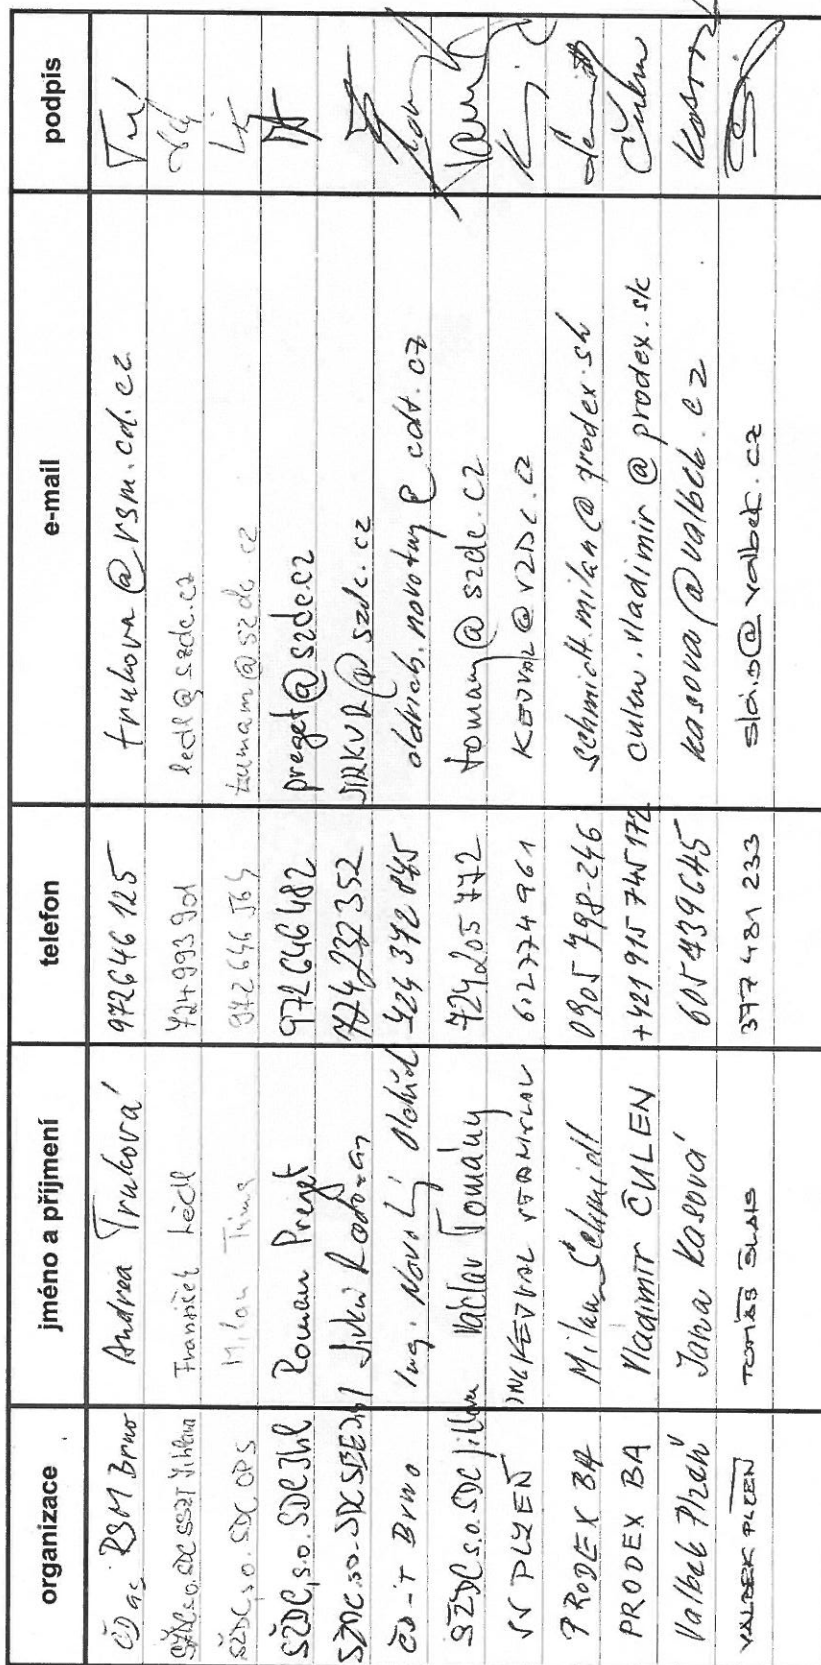 organizace jméno a příjmení telefon e-mail podpis
ČD a.s. RSM Brno Andrea Truková 972646125 trukova@rsm.cd.cz
SŽDC s.o. SDC SSZT Jihlava František Lédl 724993901 ledl@szdc.cz
SŽDC, s.o. SDC OPS Milan 972646564 @szdc.cz
SŽDC, s.o. SDC Jhl Roman Preget 972646482 preget@szdc.cz
SŽDC s.o. SDC SEE Jhl Jirků 724232352 JIRKUR@szdc.cz
ČD-T Brno Ing. Novotný Oldřich oldrich.novotny@cdt.cz
SŽDC s.o. SDC Jihlava Václav Tomány 724205772 tomany@szdc.cz
PLZEŇ ING KEJVAL STANISLAV 602774961
PRODEX BA Milan Schmidt 0905 798-246 schmidt.milan@prodex.sk
PRODEX BA Vladimír ČULEN +421 915 745 172 culen.vladimir@prodex.sk Čulen
Valbek Plzeň Jana Kasová 605439645 kasova@valbek.cz
VALBEK PLZEŇ TOMÁŠ SLAIS 377 431 233 slais@valbek.cz